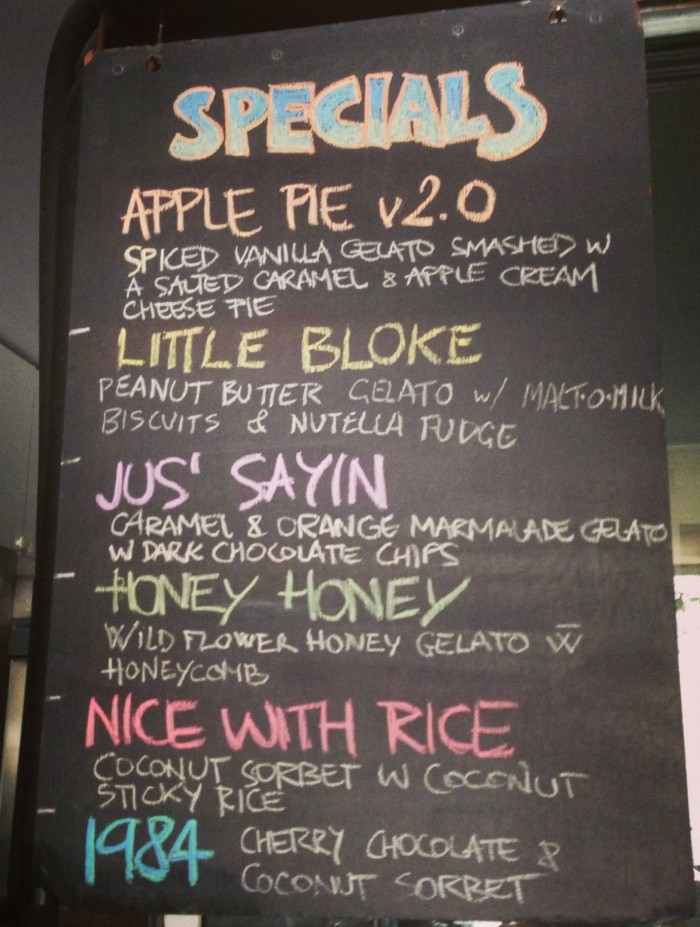 SPECIALS
APPLE PIE v2.0
SPICED VANILLA GELATO SMASHED W
A SALTED CARAMEL & APPLE CREAM
CHEESE PIE
LITTLE BLOKE
PEANUT BUTTER GELATO w/ MALT·O·MILK
BISCUITS & NUTELLA FUDGE
JUS' SAYIN
CARAMEL & ORANGE MARMALADE GELATO
W DARK CHOCOLATE CHIPS
HONEY HONEY
WILD FLOWER HONEY GELATO W̅
HONEYCOMB
NICE WITH RICE
COCONUT SORBET W COCONUT
STICKY RICE
1984 CHERRY CHOCOLATE &
COCONUT SORBET